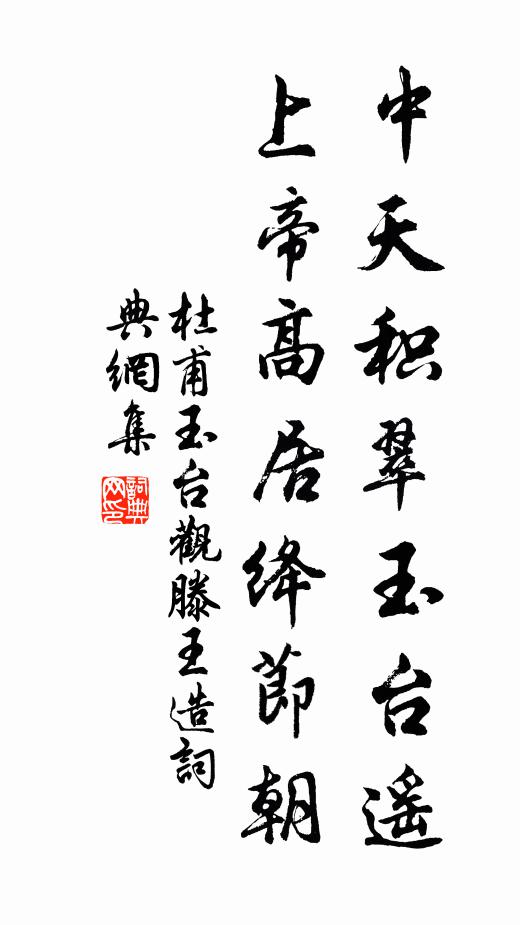 中天积翠玉台遥
上帝高居绛節朝
杜甫玉台觀滕王造詞
典網集
詞典
网印